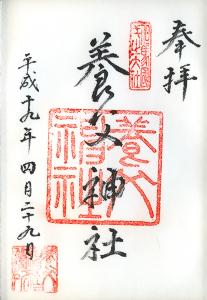 奉拝
養父神社
平成十九年四月二十九日
養父神社